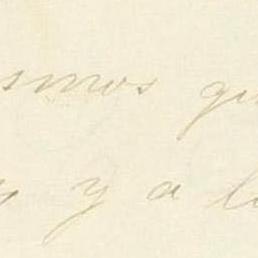 smos qu
y y a l